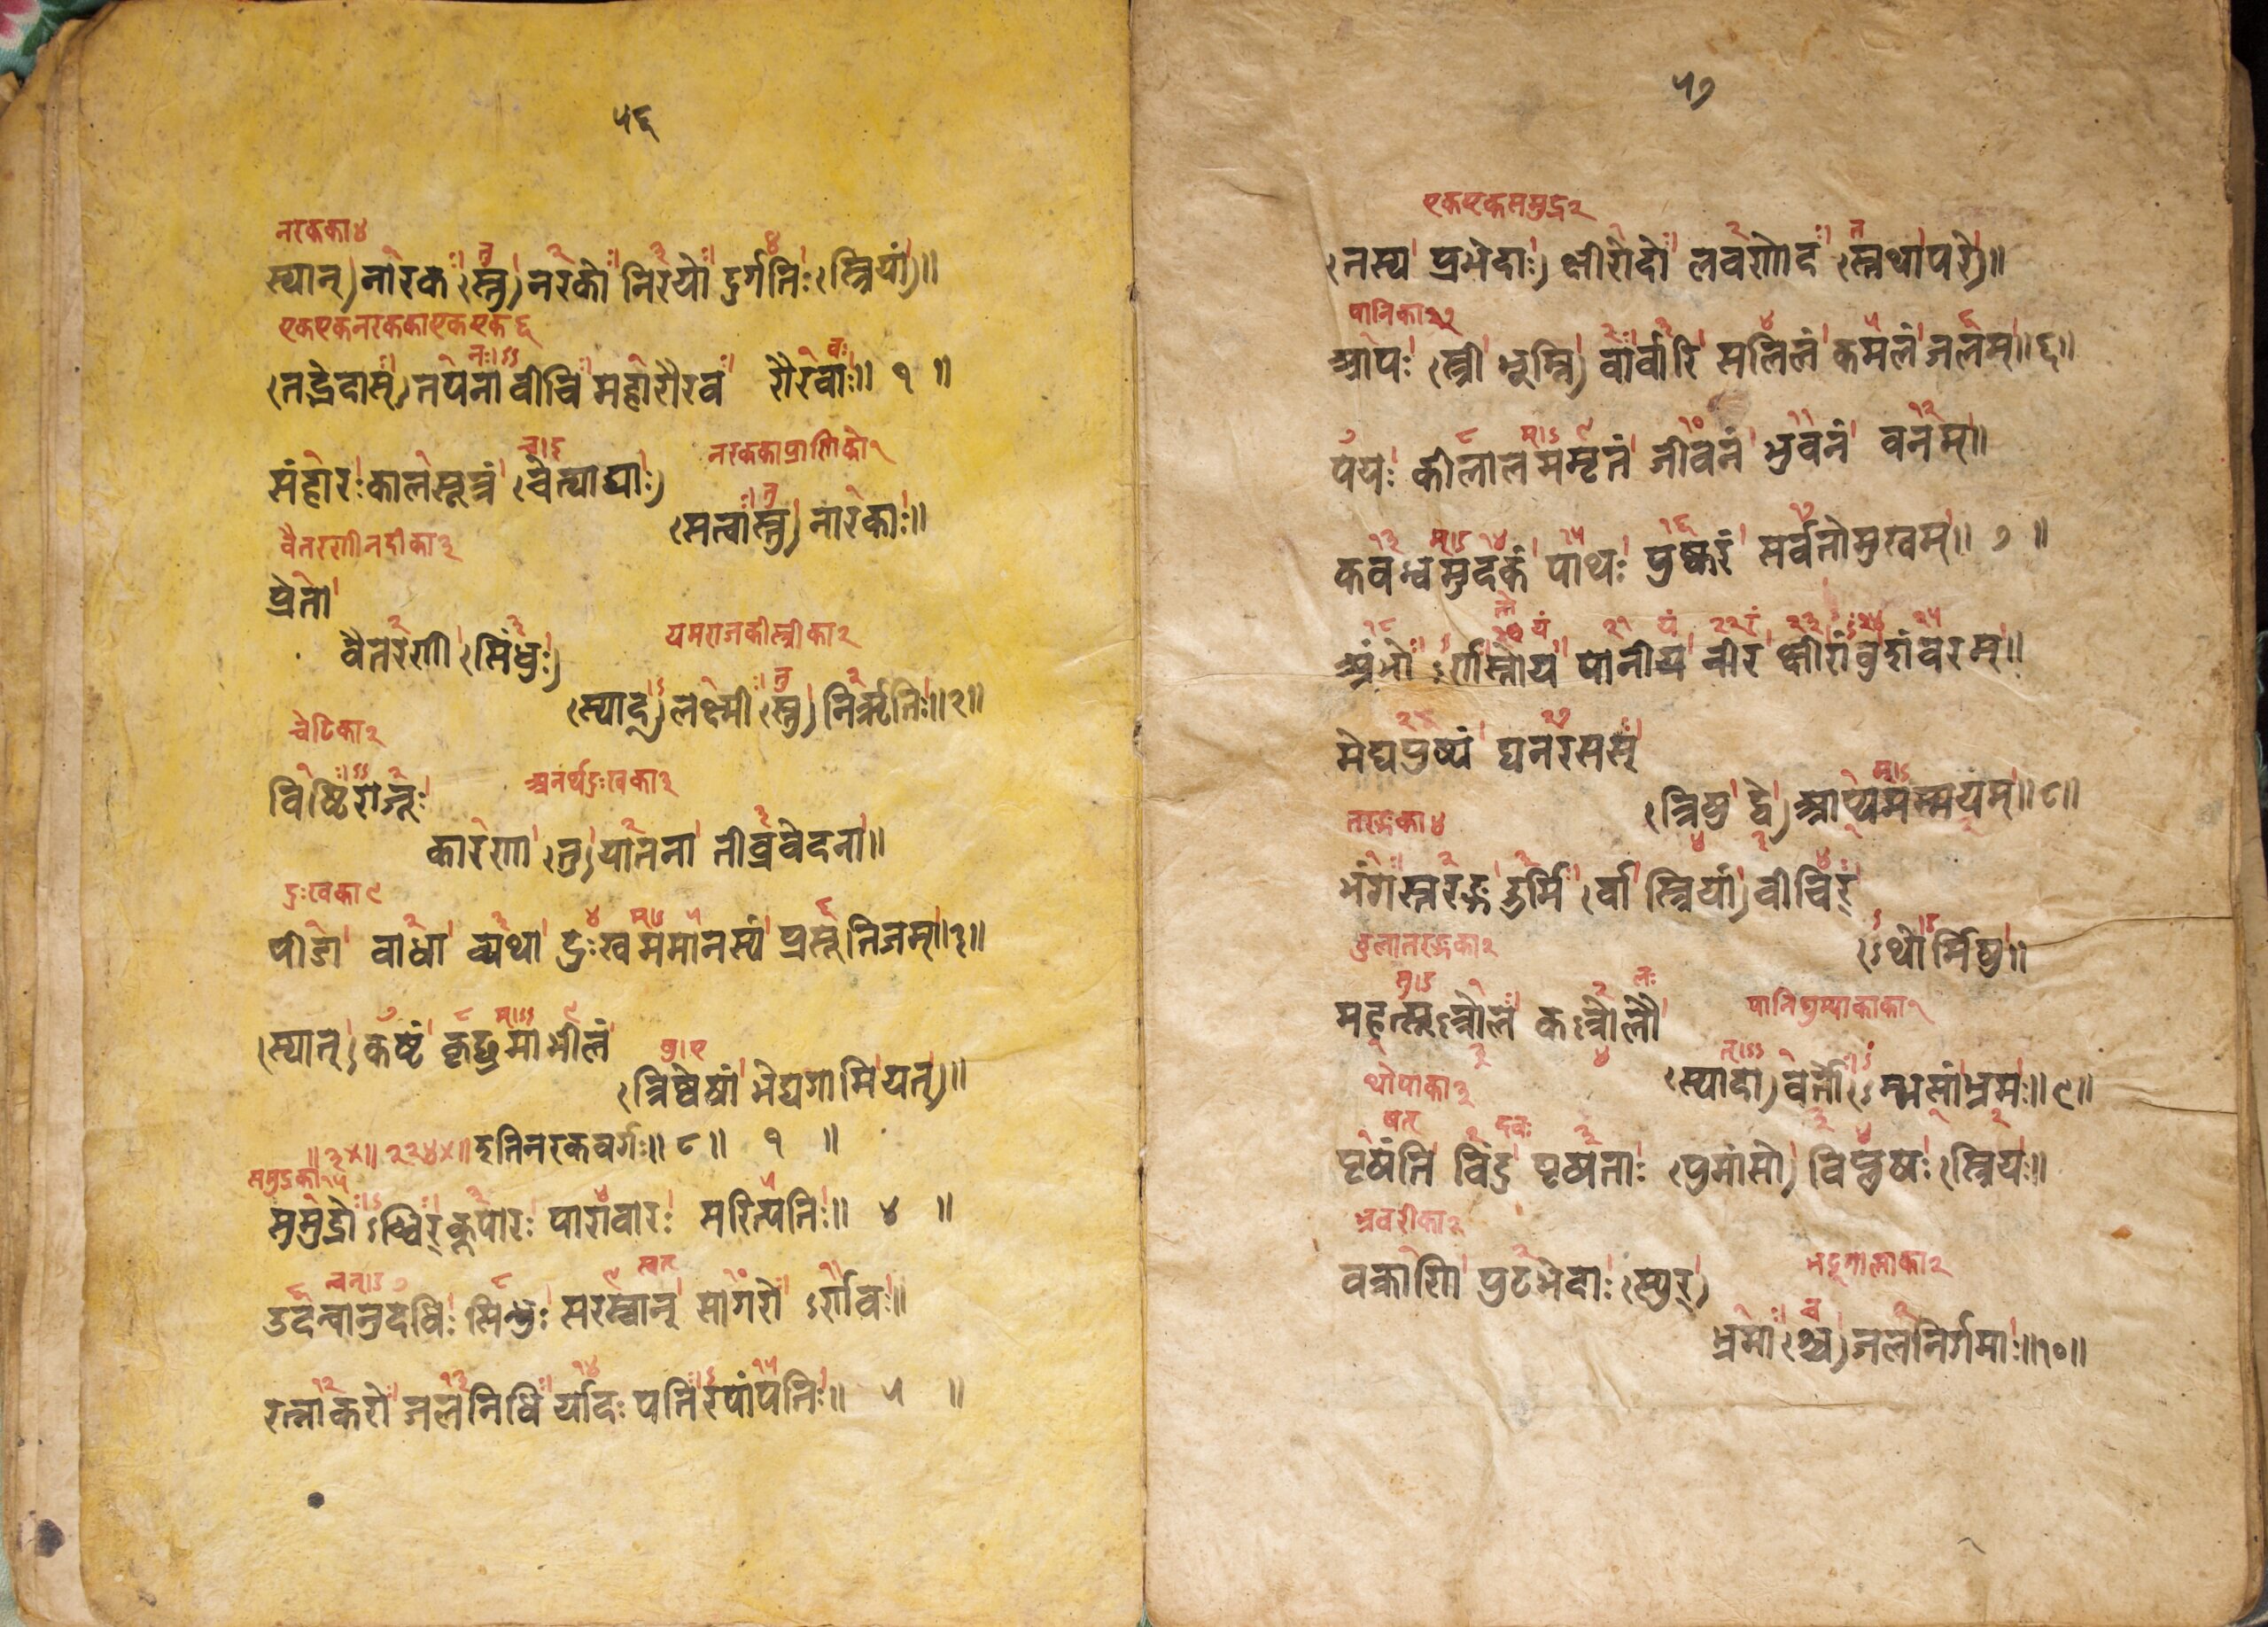 ५६
नरकका४
स्यान्)नारक(स्तु)नरको निरयो दुर्गतिः(स्त्रियां)॥
एकएकनरककाएकएक६
(तद्भेदास्)तपनावीचि महारौरव रौरवाः॥ १ ॥
संहारः कालसूत्रं (चेत्याद्याः)
नरककाप्राणिको१
(सत्वास्तु) नारकाः॥
वैतरणीनदीका२
प्रेतो
वैतरणी (सिंधुः)
यमराजकीस्त्रीका२
(स्याद्)लक्ष्मी(स्तु)निरृतिः॥२॥
चेटिका२
विष्टिराजूः
अनर्थदुःखका३
कारणा (तु)यातना तीव्रवेदना॥
दुःखका९
पीडा बाधा व्यथा दुःखममानस्यं प्रसूतिजम्॥३॥
(स्यात्)कष्टं कृछ्रमाभीलं
(त्रिष्वेषां भेद्यगामियत्)॥
॥३४॥ २२४४॥ इतिनरकवर्गः॥ ८ ॥ १ ॥
समुद्रका१५
समुद्रोऽब्धिर्कूपारः पारावारः सरित्पतिः॥ ४ ॥
उदन्वानुदधिः सिन्धुः सरस्वान् सागरो ऽर्णवः॥
रत्नाकरो जलनिधिर्यादःपतिरपांपतिः॥ ५ ॥
५७
एकएकसमुद्र२
(तस्य प्रभेदाः) क्षीरोदो लवणोद(स्तथापरे)॥
पानिका२७
आपः (स्त्री भूम्नि) वार्वारि सलिलं कमलं जलम्॥६॥
पयः कीलालममृतं जीवनं भुवनं वनम्॥
कवन्धमुदकं पाथः पुष्करं सर्वतोमुखम्॥ ७ ॥
अंभोऽर्णस्तोय पानीय नीर क्षीरांवुशंवरम्॥
मेघपुष्पं घनरसस्
(त्रिषु द्वे)आप्यमम्मयम्॥८॥
तरङ्गका४
भंगस्तरङ्ग उर्मि(र्वा स्त्रियां)वीचिर्
(ऽथोर्मिषु॥
ठुलातरङ्गका२
महत्सूल्लोल कल्लोलौ
पानिघुम्याकाका१
(स्यादा)वर्तो(ऽम्भसांभ्रमः॥९॥
थोपाका३
पृषंति विंदु पृषताः (पुमांसो)विप्रुषः(स्त्रियः॥
भ्रवरीका२
वक्राणि पुटभेदाः (स्युर्)
भ्रमा(श्च)जलनिर्गमाः॥१०॥